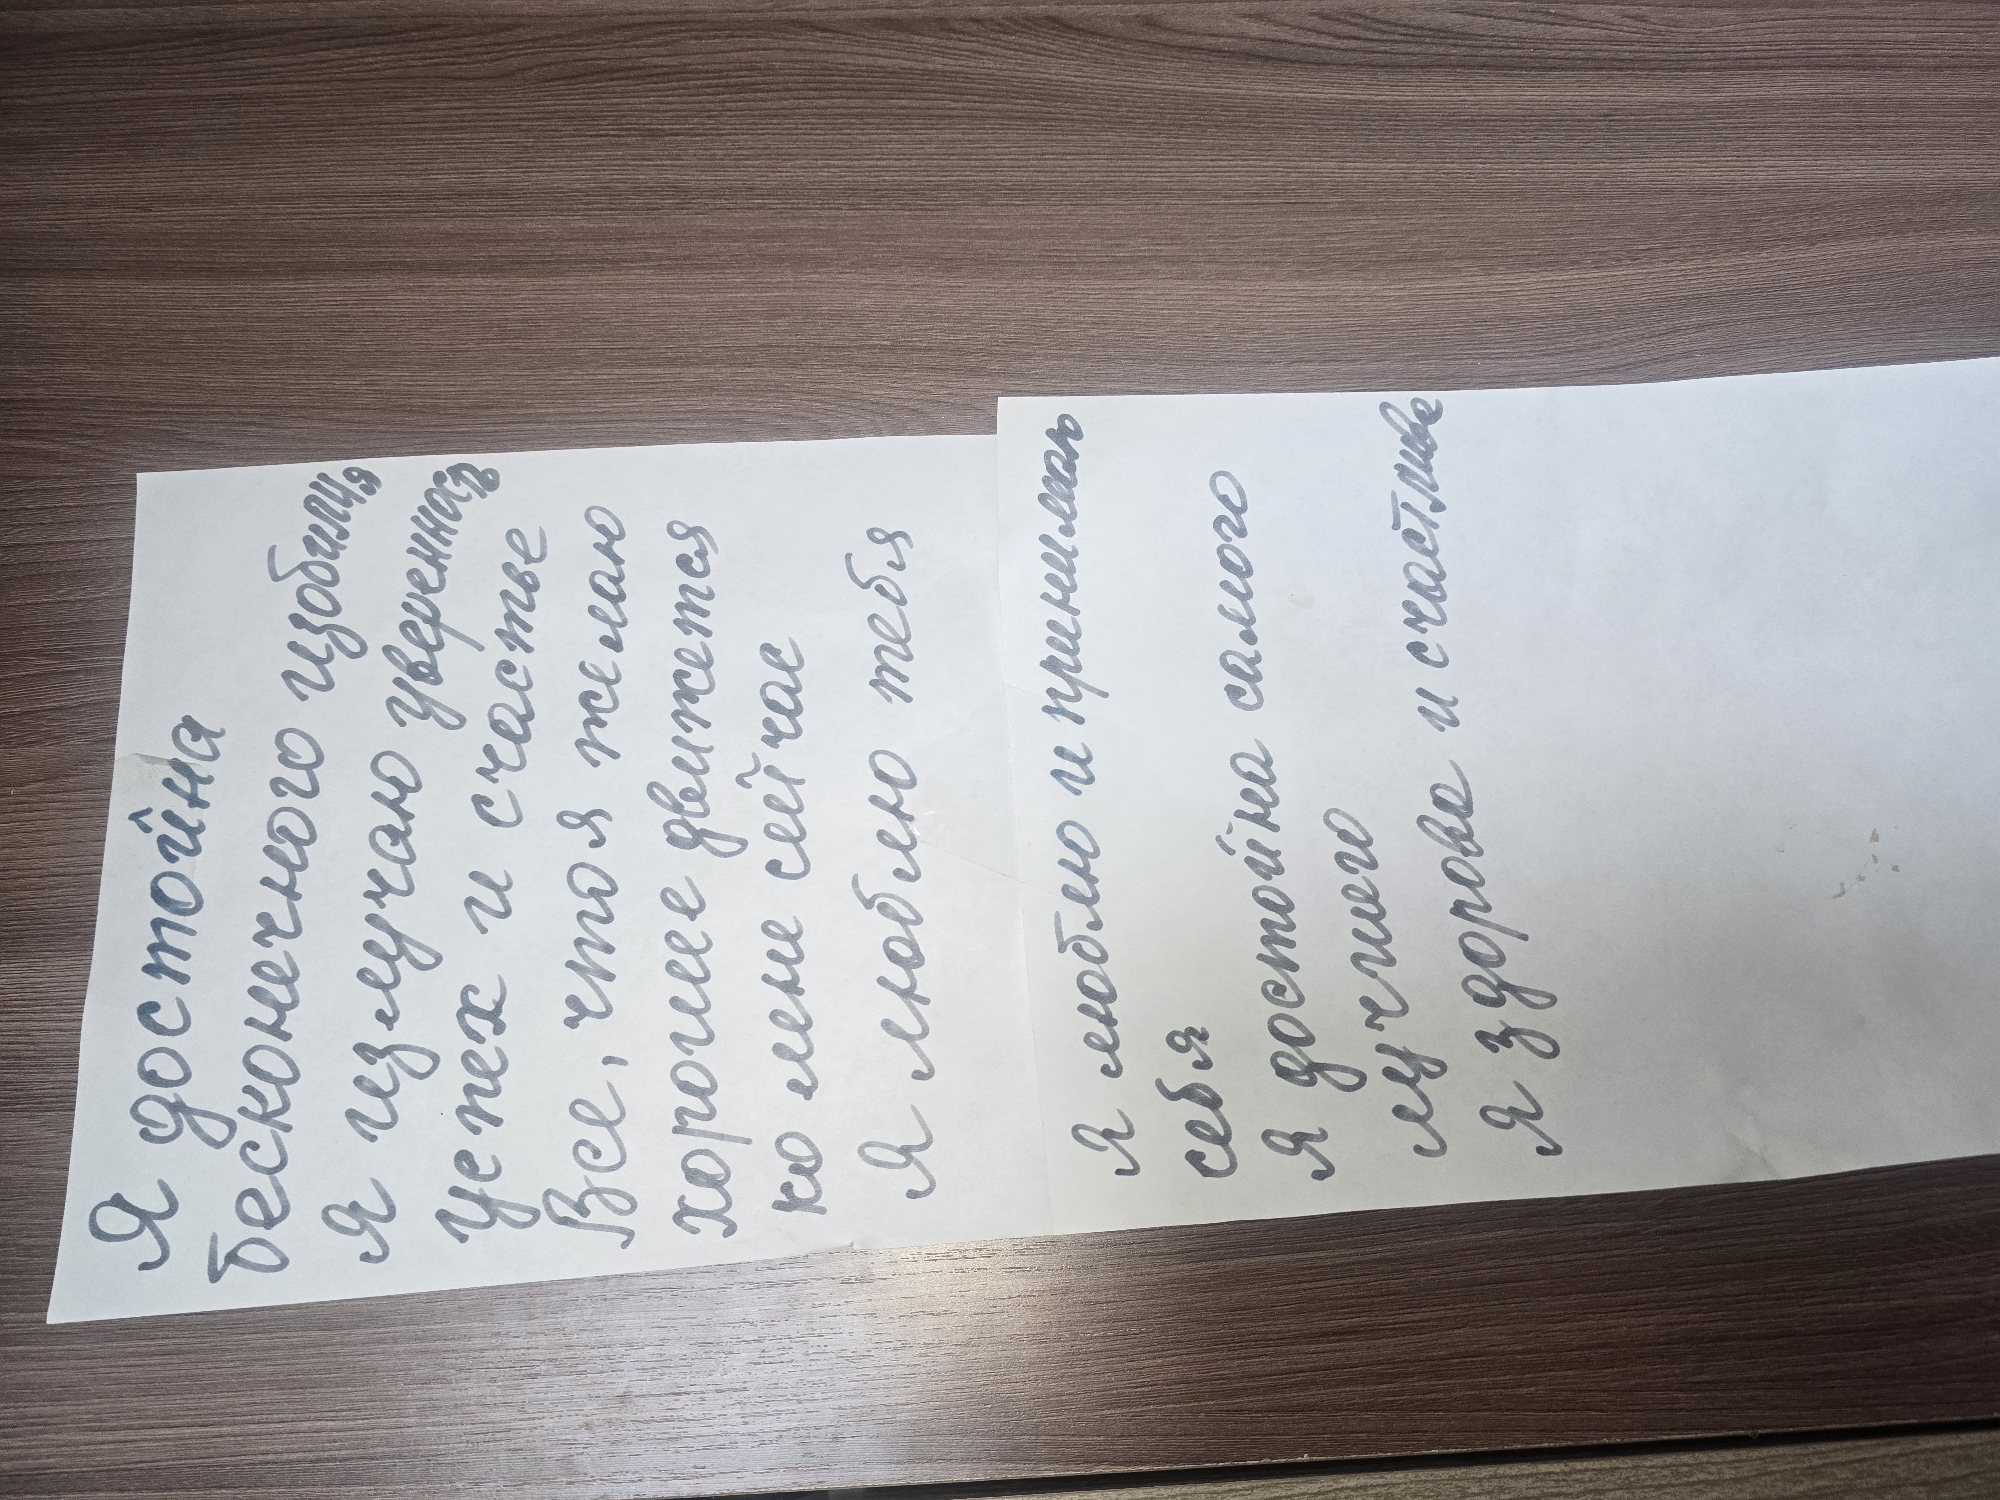 Я достойна
бесконечного изобилия
Я излучаю уверенная
успех и счастье
Все, что я желаю
хорошее движется
ко мне сейчас
Я люблю тебя
Я люблю и принимаю
себя
Я достойна самого
лучшего
Я здорова и счастлива